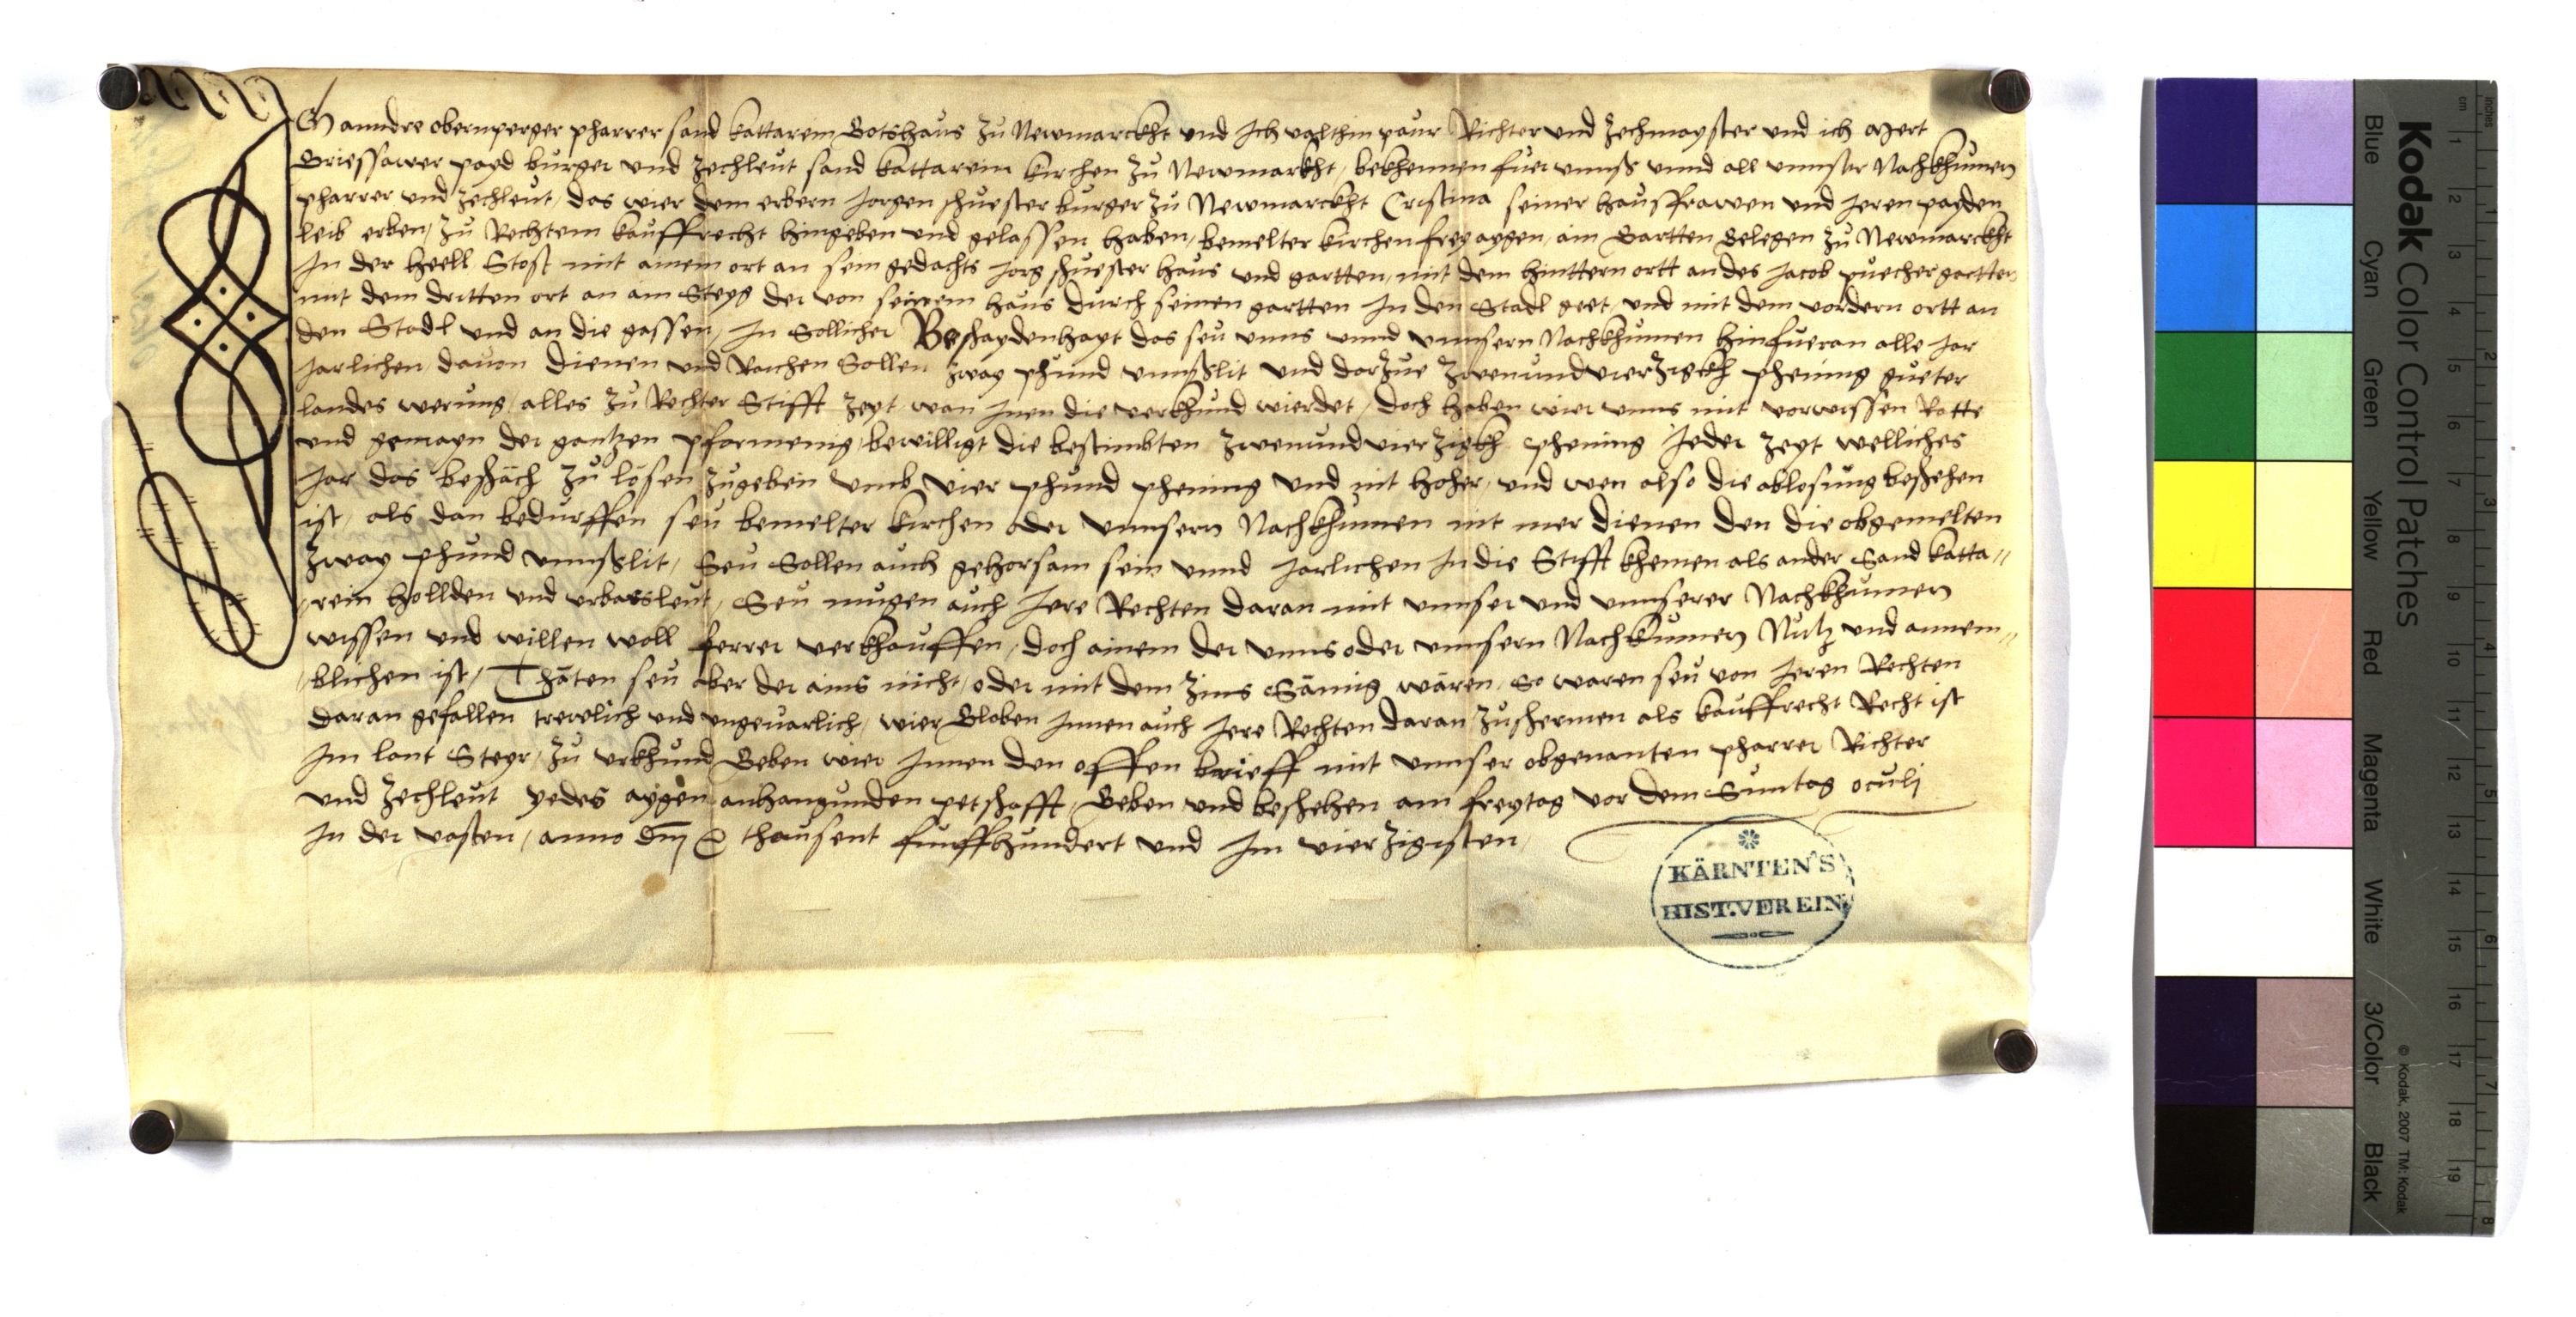 Ich anndre obernperger pharrer sand kattarein Gotshaus zu Newmarckht und Ich valthin paur Richter und zechmayster und ich Mert
Griessawer payd burger und zechleut sand kattarein kirchen zu Newmarkht, bekhennen fuer unnß unnd all unnser Nachkhumen
pharrer und zechleut, das wier dem erbern Jorgen schuester burger zu Newmarckht Cristina seiner hausfrawen und Jeren payden
leib erben, zu Rechtem kauffrecht hingeben und gelassen haben, bemelter kirchen frey aygen, ain Gartten Gelegen zu Newmarckht
In der heell Stost mit ainem ort an sein gedachts Jorg schuester haus und gartten, mit dem hinttern ortt an des Jacob puecher gartten
mit dem dritten ort an am Steyg der von seinem haus durch seinen gartten In den Stadl geet, und mit dem vordern ortt an
den Stadl und an die gassen, In Sollicher Beschaydenhayt das seu unns unnd unnsern Nachkhumen hinfueran alle Jar
Jarlichen davon dienen und Raichen Sollen zway phund unnßlit und darzue zwenundvierzigkh phening gueter
landes werung, alles zu Rechter Stifft zeyt wan Inen die verkhund wierdet, doch haben wier unns mit vorwissen Ratte
und gemayn der gantzen pfarmenig, bewilligt die bestimbten zwenundvierzigkh phening Jeder zeyt welliches
Jar das beschäch zu lösen zugeben umb vier phund phening und nit hoher, und wen also die ablosung beschehen
ist, als dan bedurffen seu bemelter kirchen oder unnsern Nachkhumen nit mer dienen den die obgemelten
zway phund unnßlit, Seu Sollen auch gehorsam sein unnd Jarlichen In die Stifft khemen als ander Sand katta-
-rein hollden und urbarsleut, Seu mugen auch Jere Rechten daran mit unnser und unnserer Nachkhumen
wissen und willen woll ferrer verkhauffen, doch ainem der unns oder unnsern Nachkhumen Nutz und annem-
-blichen ist, Thäten seu aber der ains nicht, oder mit dem zins Sämig wären, So waren seu von Jeren Rechten
daran gefallen trewlich und ungevarlich, wier Globen Innen auch Jere Rechten daran zuschermen als kauffrecht Recht ist
Im lant Steyr, zu urkhund Geben wier Innen den offen brieff mit unnser obgenanten pharrer Richter
und zechleut yedes aygen anhangunden petschafft, Geben und beschehen am freytag vor dem Suntag oculj
In der vasten, anno dm̄ thausent funffhundert und Im vierzigisten,
KÄRNTEN'S
HIST. VEREIN
Kodak Color Control Patches
Blue Cyan Green Yellow Red Magenta White 3/Color Black
© Kodak, 2007 TM: Kodak
inches 1 2 3 4 5 6 7 8
cm 1 2 3 4 5 6 7 8 9 10 11 12 13 14 15 16 17 18 19